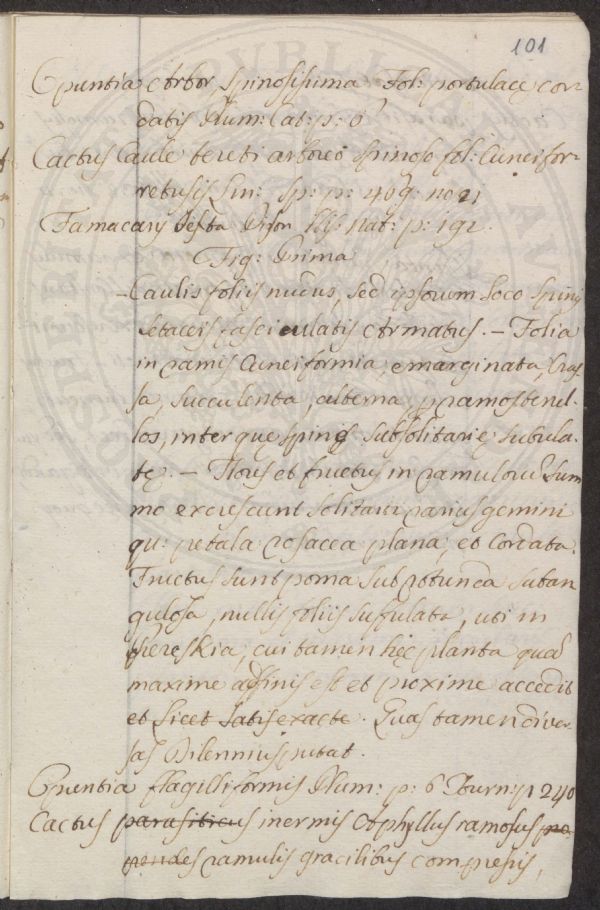 101
Opuntia Arbor spinosissima Fol: portulacę cor-
datis Plum: Cat: p: 6
Cactus Caule tereti arboreo spinoso fol: Cuneifor-
retusis Lin: Sp: p: 469: no 21
Jamacary Testa Pison his: nat: p: 192.
Fig: Prima
- Caulis foliis nudus, sed ipsorum loco spinis
setaceis fasciculatis Armatus. - Folia
in ramis Cuneiformia, emarginata, Cras-
sa, succulenta, alterna p ramos tenel-
los, inter quę spinę subsolitarię subula-
tę. - Flores et fructus in ramulorum sum
mo excrescunt solitarii rarius gemini
qu: petala rosacea plana, et Cordata.
Fructus sunt poma subrotunda suban
gulosa, nullis foliis sufulata, uti in
Pereskia, cui tamen hęc planta quam
maxime affinis est et proxime accedit
et licet satis exacte. Quas tamen diver-
sas Dilennius putat.
Opuntia flagilliformis Plum: p: 6 Turn: p 240
Cactus parasiticus inermis Aphyllus ramosus pro
pendes ramulis gracilibus compressis,